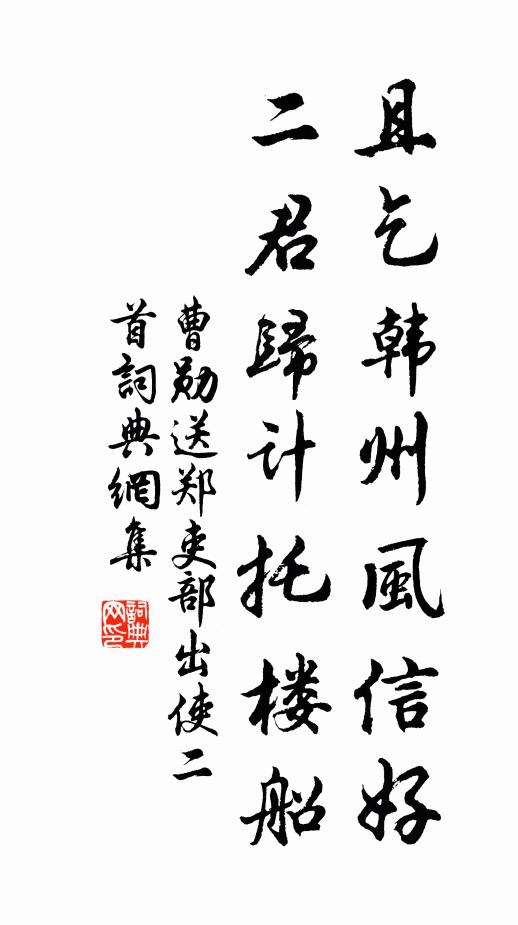 且乞韩州風信好
二君歸计托楼船
曹勋送郑吏部出使二
首詞典網集
詞典
网印